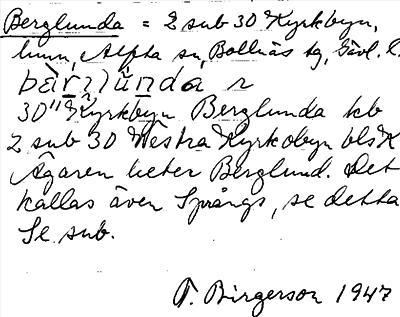 Berglunda = 2 sub 30 Kyrkbyn,
hmn, Alfta sn, Bollnäs tg, Gävl. l.
30 Kyrkbyn Berglunda kb
2 sub 30 Westra Kyrkobyn bls K
Ägaren heter Berglund. Det
kallas även Språngs, se detta
Se sub.
T. Birgerson 1947